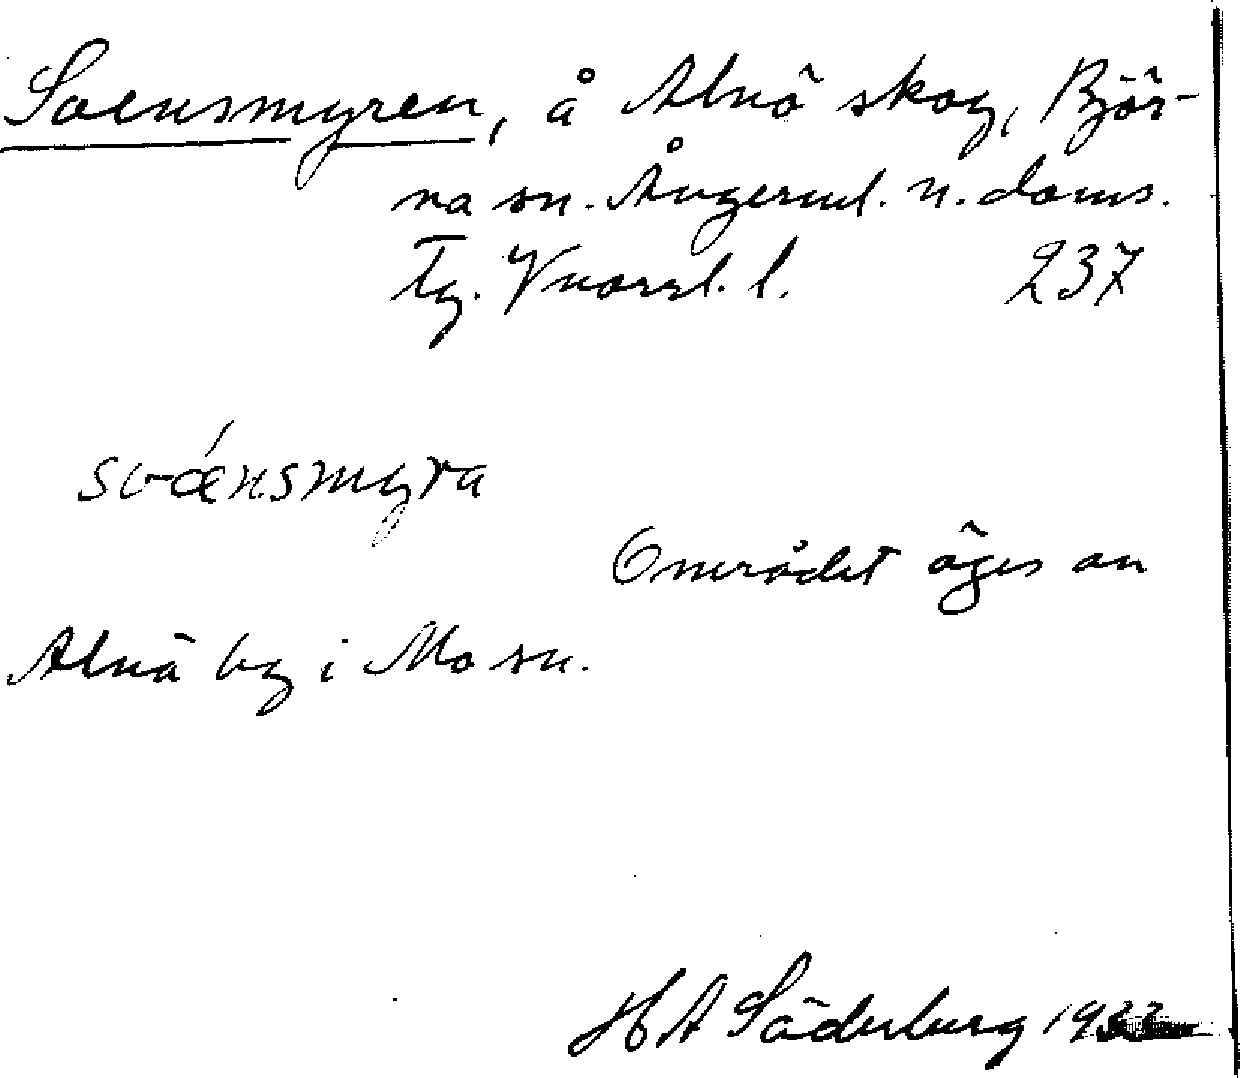 Svensmyren, å Alnö skog, Björ-
na sn. Ångerml. n. doms.
Tg. Vuorsl. l. 237
svǽnsmyra
Området äges av
Alnä by i Mo sn.
H A Söderberg 1933